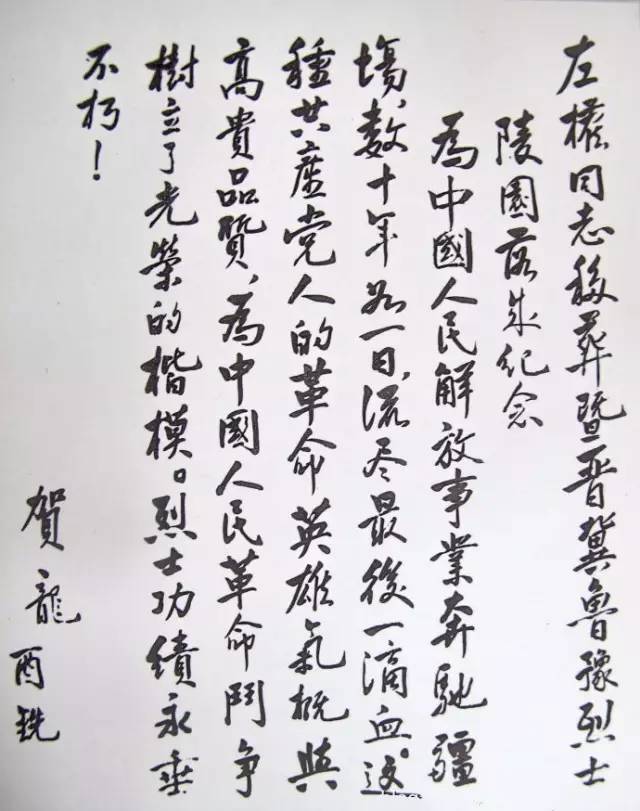 左權同志移葬暨晋冀魯豫烈士
陵園落成纪念
為中國人民解放事業奔馳疆
場，数十年如一日，流尽最後一滴血。这
種共產党人的革命英雄氣概與
高貴品質，為中國人民革命鬥争
樹立了光榮的楷模。烈士功績永垂
不朽！
賀龍